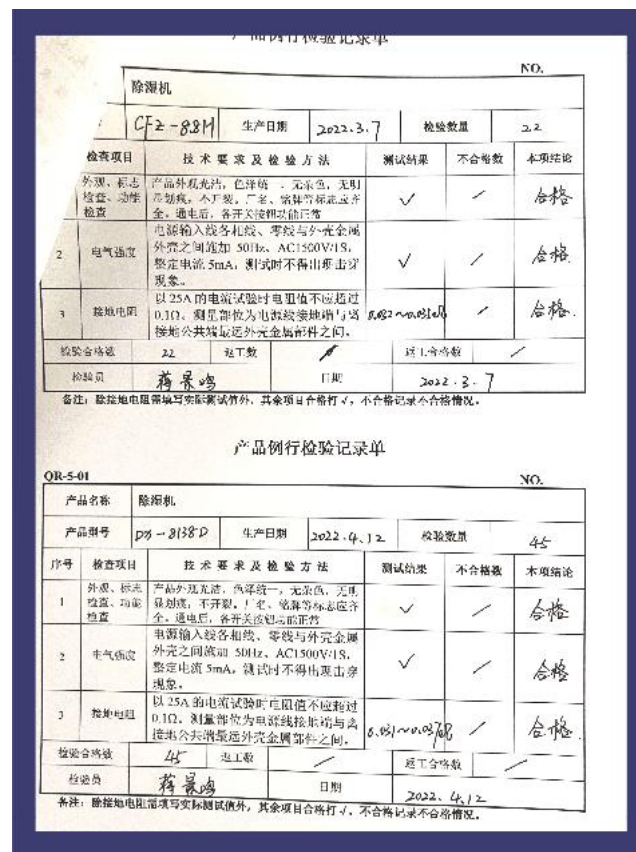 产品例行检验记录单
NO.
除湿机
CFZ-8.8H 生产日期 2022.3.7 检验数量 22
检查项目 技术要求及检验方法 测试结果 不合格数 本项结论
外观、标志检查、功能检查 产品外观光洁，色泽统一、无杂色，无明显划痕，不开裂。厂名、铭牌等标志应齐全。通电后，各开关按钮功能正常 ✓ / 合格
2 电气强度 电源输入线各相线、零线与外壳金属外壳之间施加 50Hz、AC1500V/1S，整定电流 5mA，测试时不得出现击穿现象。 ✓ / 合格
3 接地电阻 以 25A 的电流试验时电阻值不应超过 0.1Ω。测量部位为电源线接地端与离接地公共端最远外壳金属部件之间。 / 合格.
检验合格数 22 返工数 / 返工合格数 /
检验员 蒋景鸣 日期 2022.3.7
备注：除接地电阻需填写实际测试值外，其余项目合格打√，不合格记录不合格情况。
产品例行检验记录单
QR-5-01 NO.
产品名称 除湿机
产品型号 DX-8138D 生产日期 2022.4.12 检验数量 45
序号 检查项目 技术要求及检验方法 测试结果 不合格数 本项结论
1 外观、标志检查、功能检查 产品外观光洁，色泽统一，无杂色，无明显划痕，不开裂。厂名、铭牌等标志应齐全。通电后，各开关按钮功能正常 ✓ / 合格
2 电气强度 电源输入线各相线、零线与外壳金属外壳之间施加 50Hz、AC1500V/1S，整定电流 5mA，测试时不得出现击穿现象。 ✓ / 合格
3 接地电阻 以 25A 的电流试验时电阻值不应超过 0.1Ω。测量部位为电源线接地端与离接地公共端最远外壳金属部件之间。 / 合格.
检验合格数 45 返工数 / 返工合格数 /
检验员 蒋景鸣 日期 2022.4.12
备注：除接地电阻需填写实际测试值外，其余项目合格打√，不合格记录不合格情况。